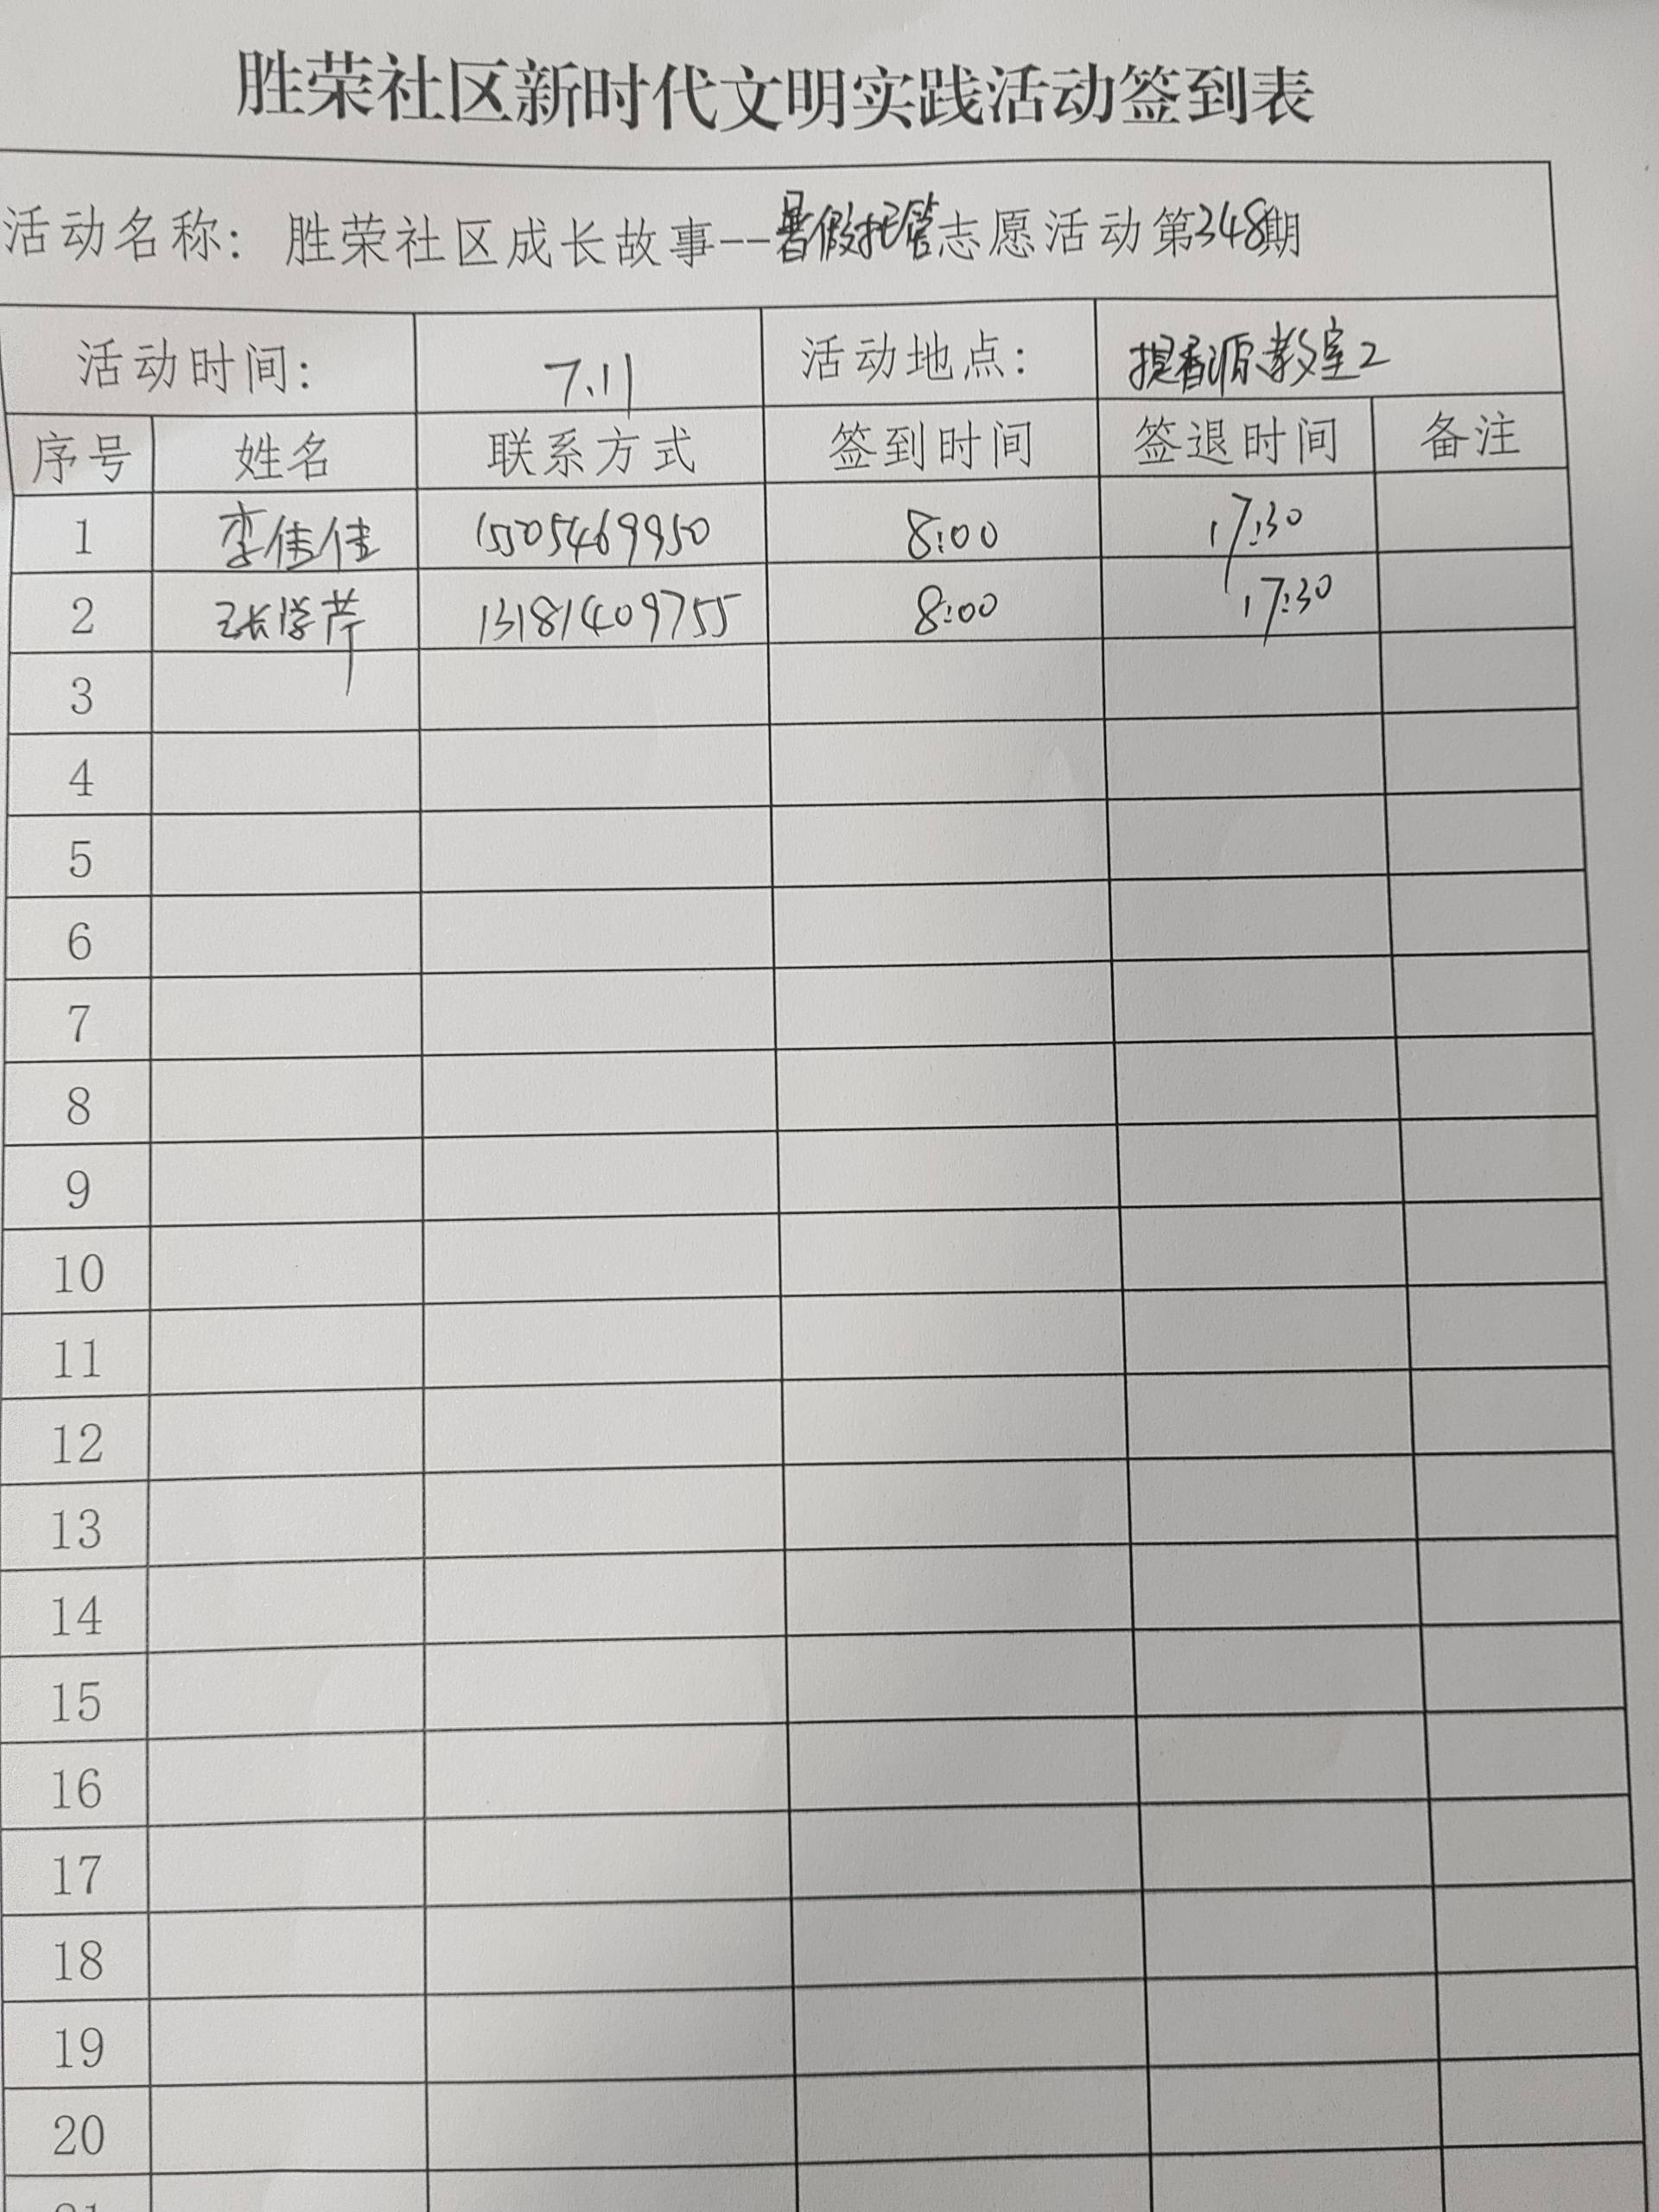 胜荣社区新时代文明实践活动签到表
活动名称：胜荣社区成长故事--暑假托管志愿活动第348期
活动时间： 7.11 活动地点： 提香源教室2
序号 姓名 联系方式 签到时间 签退时间 备注
1 李伟佳 15505469950 8:00 17:30
2 张学芹 13181409755 8:00 17:30
3
4
5
6
7
8
9
10
11
12
13
14
15
16
17
18
19
20